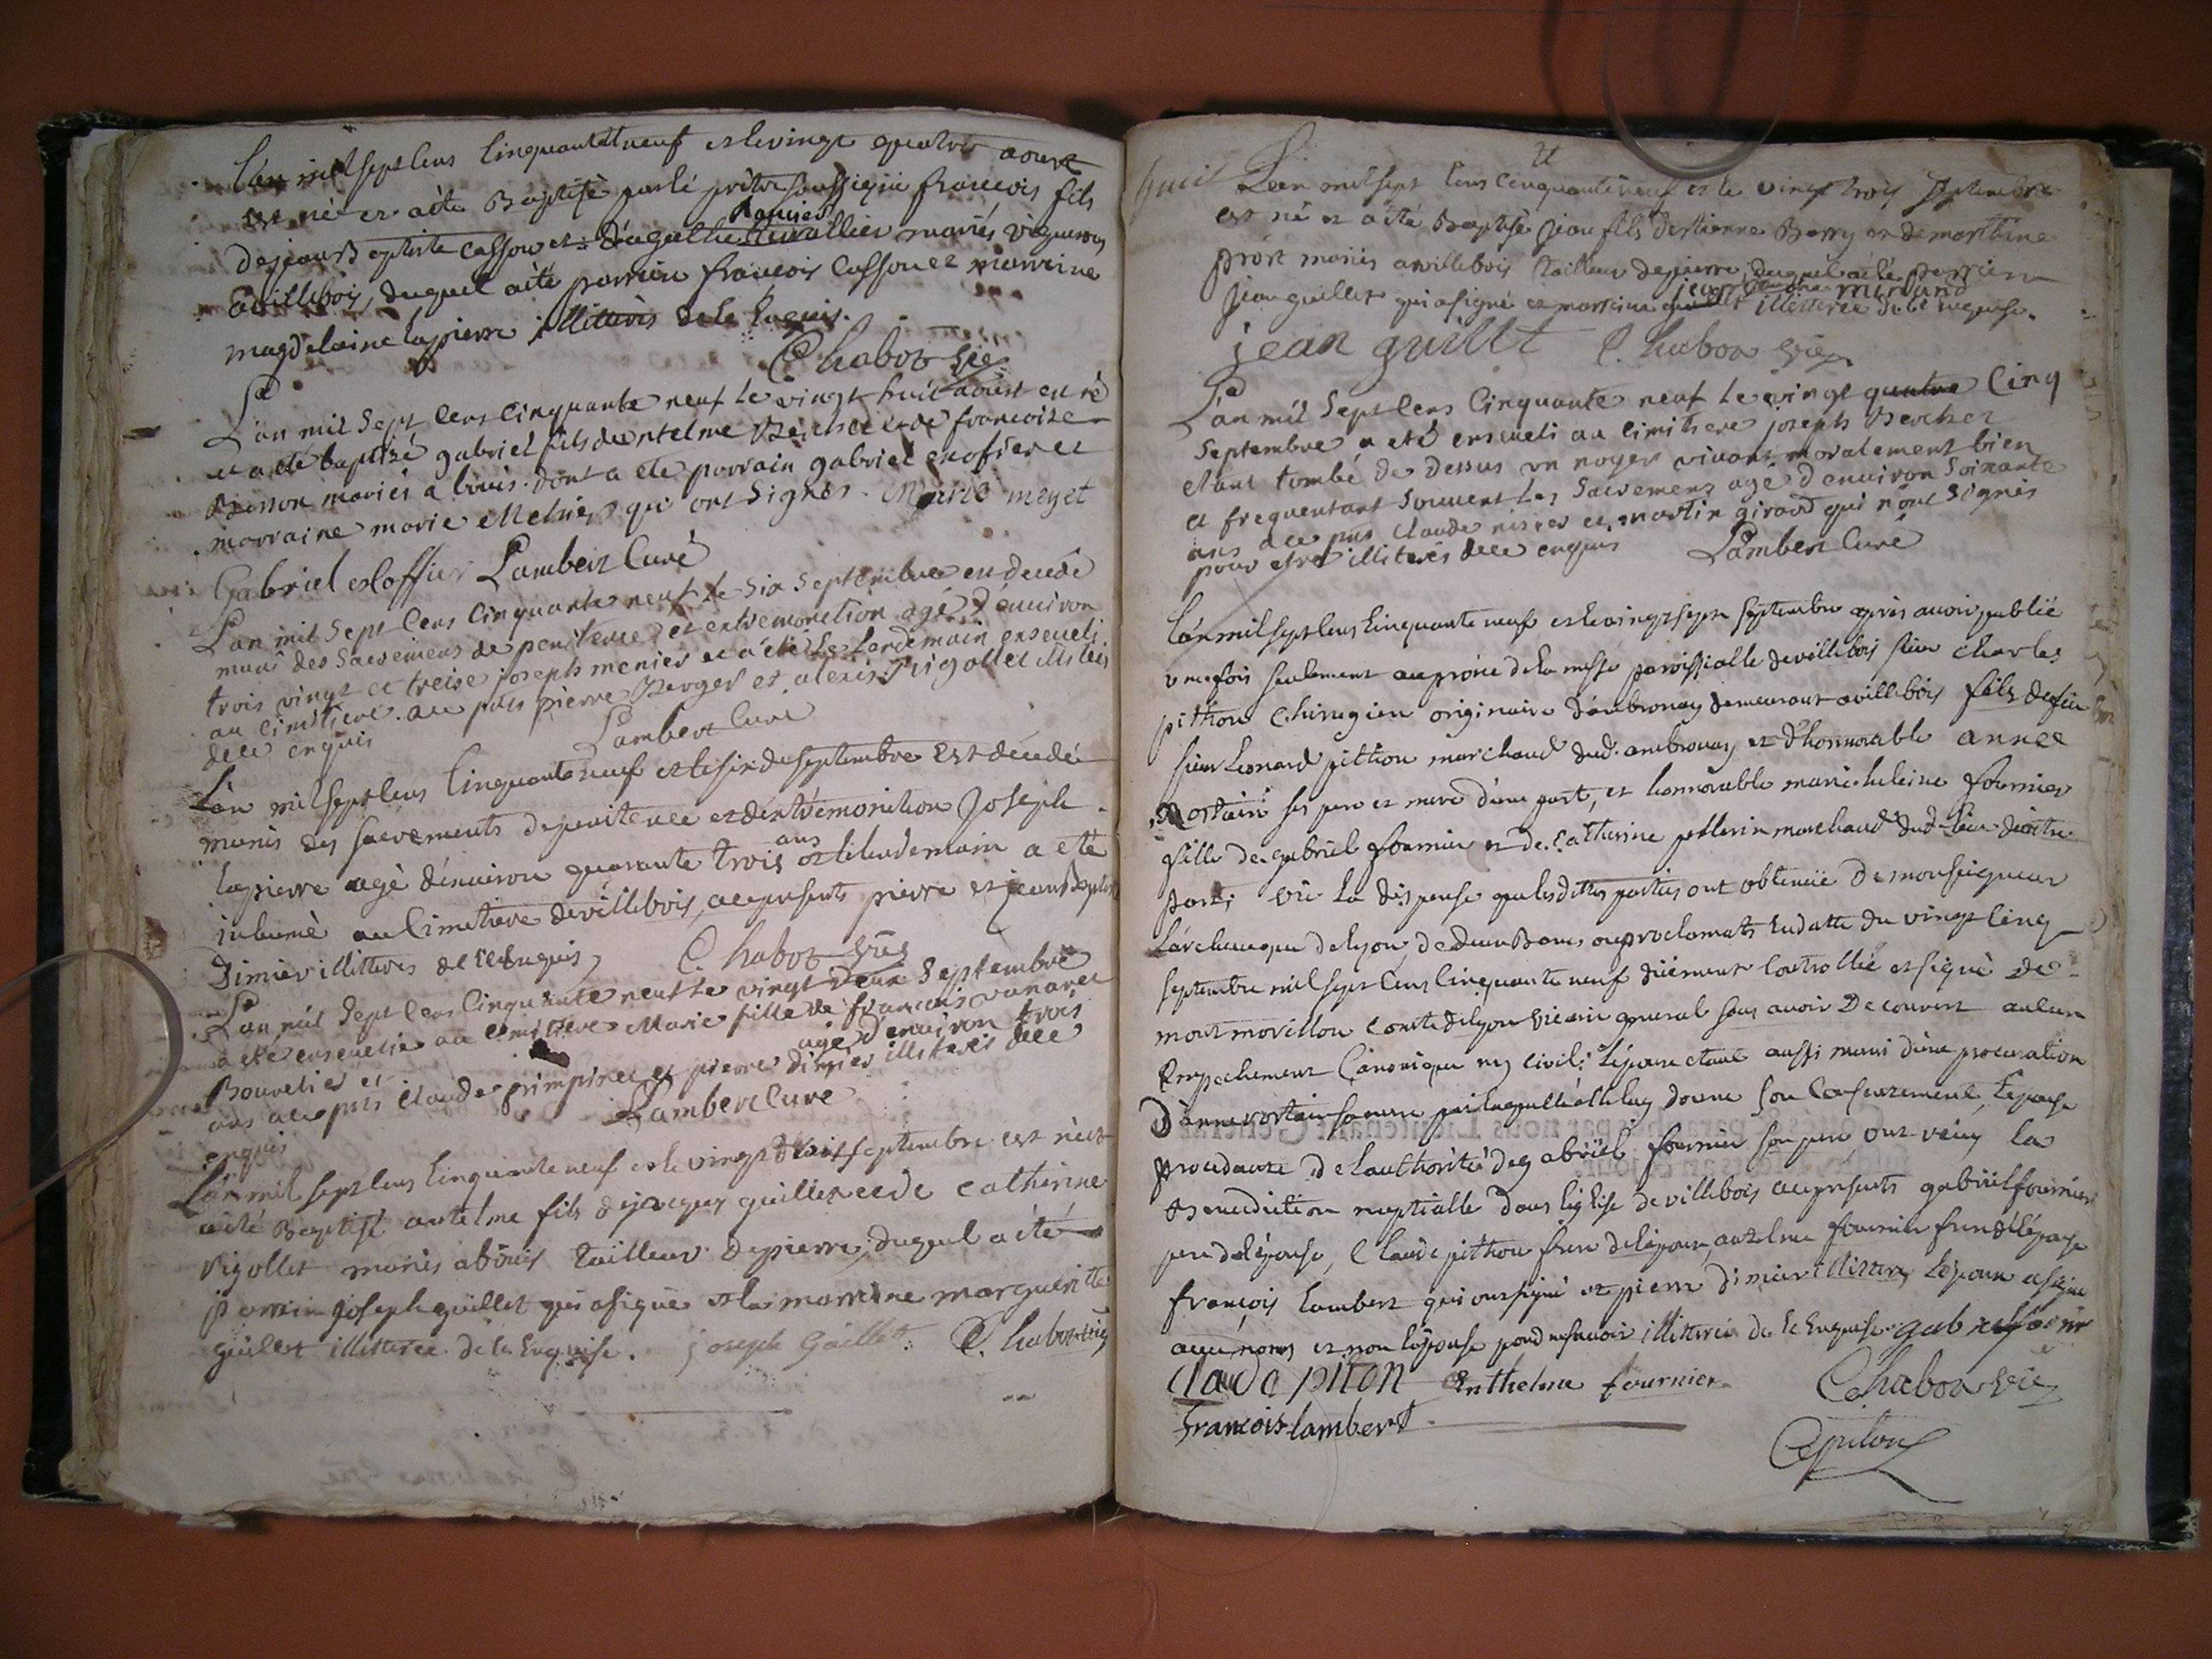 L'an mil sept cens cinquante et neuf et le vingt quatre aoust
est né et a été Baptisé par le prêtre soussigné françois fils
de jean Baptiste Casson et d'agathe mariés vigneron
a villebois, duquel a été parrein françois Casson et marreine
magdelaine lapierre illitterés de ce enquis.
Chabot vic
L'an mil Sept Cens Cinquante neuf le vingt huit aoust eu né
et a eté baptisé gabriel fils de entelme et de francoise
Bisson mariés a bouis. dont a eté parrain gabriel exofier et
marraine marie qui ont Signés. Marie meyet
Gabriel exoffier Lambert Curé
L'an mil Sept Cens Cinquante neuf le Six Septembre eu decedé
muni des Sacremens de penitence et extremonction agé d'environ
trois vingt et treise joseph menier et a été le lendemain enseveli
au cimitiere. ace pns pierre Berger et alexis rigollet illiterés
dece enquis Lambert Curé
L'an mil sept cens Cinquante neuf et le six de septembre Est decedé
munis des sacrements de penitence et dextrémonction Joseph
lapierre agé d'environ quarante trois ans et le lendemain a eté
inhumé au Cimetiere de villebois, ace presents pierre et jean Baptiste
Dimier illitteres de ce enquis, Chabot vic
L'an mil Sept Cens Cinquante neuf le vingt Deux Septembre
a eté ensevelie au cimitiere Marie fille de francois vanarel
Bouvetier et agé d'environ trois
ans ace pns claude primpinet et pierre dimier illiterés dece
enquis Lambert Curé
L'an mil sept cens cinquante neuf et le vingt trois septembre est né et
a été Baptisé antelme fils de jacques guillet et de catherine
rigollet mariés a bouis tailleur de pierre, duquel a été
parrein joseph guillet qui a signé et la marreine marguerite
guillet illitterée de ce Enquise. joseph Guillet. Chabot vic
L'an mil sept cens cinquante neuf et le vingt trois septembre
est né et a été Baptisé jean fils destienne Barry et de martine
prost mariés a villebois tailleur de pierre, duquel a été parrein
jean guillet qui a signé et marreine jean claudine miraud illitterée de ce enquise.
jean guillt C. habot vic
L'an mil Sept Cens Cinquante neuf le vingt quatre Cinq
Septembre a eté enseveli au Cimitiere joseph Berchet
etant tombé de dessus un noyer vivant moralement bien
et frequentant Souvent les Sacremens agé d'environ Soixante
ans ace pns Claude nisier et martin giraud qui n'ont Signés
pour etre illiterés dece enquis Lambert Curé
L'an mil sept cens cinquante neuf et le vingt sept septembre après avoir publié
une fois seulement au prône de la messe paroissialle de villebois sieur Charles
pithon Chirugien originaire d'ambronay demeurant a villebois fils de feu
sieur Leonard pithion marchand dud. ambronay et d'honnorable anne
Rostain ses pere et mere d'une part, et honnorable marie heleine fournier
fille de gabriel fournier et de catherine pellerin marchand dud. lieu d'autre
part, vû la dispense que lesdittes parties ont obtenüe de monseigneur
l'archeveque de lyon, de deux Bans ou proclamats en datte du vingt cinq
septembre mil sept cens cinquante neuf düement controllée et signé de
mont morillon comte de lyon vicaire general sans avoir découvert aucun
Empechement Canonique ny civil; l'epoux etant aussi muni d'une procuration
d'anne rostain sa mere par laquelle elle luy donne son consentement, l'epouse
procedante de l'authorité de gabriel fournier son pere ont reçu la
Benediction nuptialle dans l'eglise de villebois ace presents gabriel fournier
pere de l'épouse, Claude pithon frere de l'époux, antelme fournier frere de l'épouse
françois lambert qui ont signé et pierre dimier illitteré, l'epoux a signé
avec nous et non l'épouse pour ne savoir illitterée de ce Enquise. gabriel fournier
claude piton Enthelme fournier Chabot vic
francois lambert
C pithon